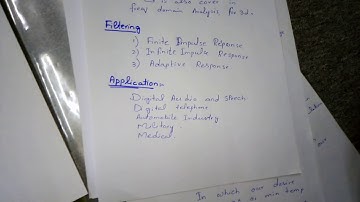 is also cover in
freq domain Analysis for 3d.
Filtering
1) Finite Impulse Reponse
2) Infinite Impulse Response
3) Adaptive Response
Application:-
Digital Audio and speech
Digital telephone
Automobile Industry
Military
Medical
In which our desire
or min temp